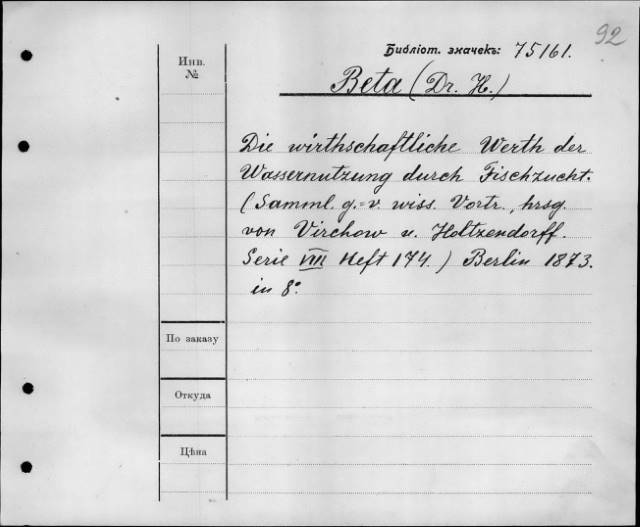 92
Библіот. значекъ: 75161.
Инв.
№
Beta (Dr. H.)
Die wirthschaftliche Werth der
Wassernutzung durch Fischzucht.
(Samml. g.-v. wiss. Vortr., hrsg.
von Virchow u. Holtzendorff.
Serie VIII Heft 174.) Berlin 1873.
in 8º
По заказу
Откуда
Цѣна